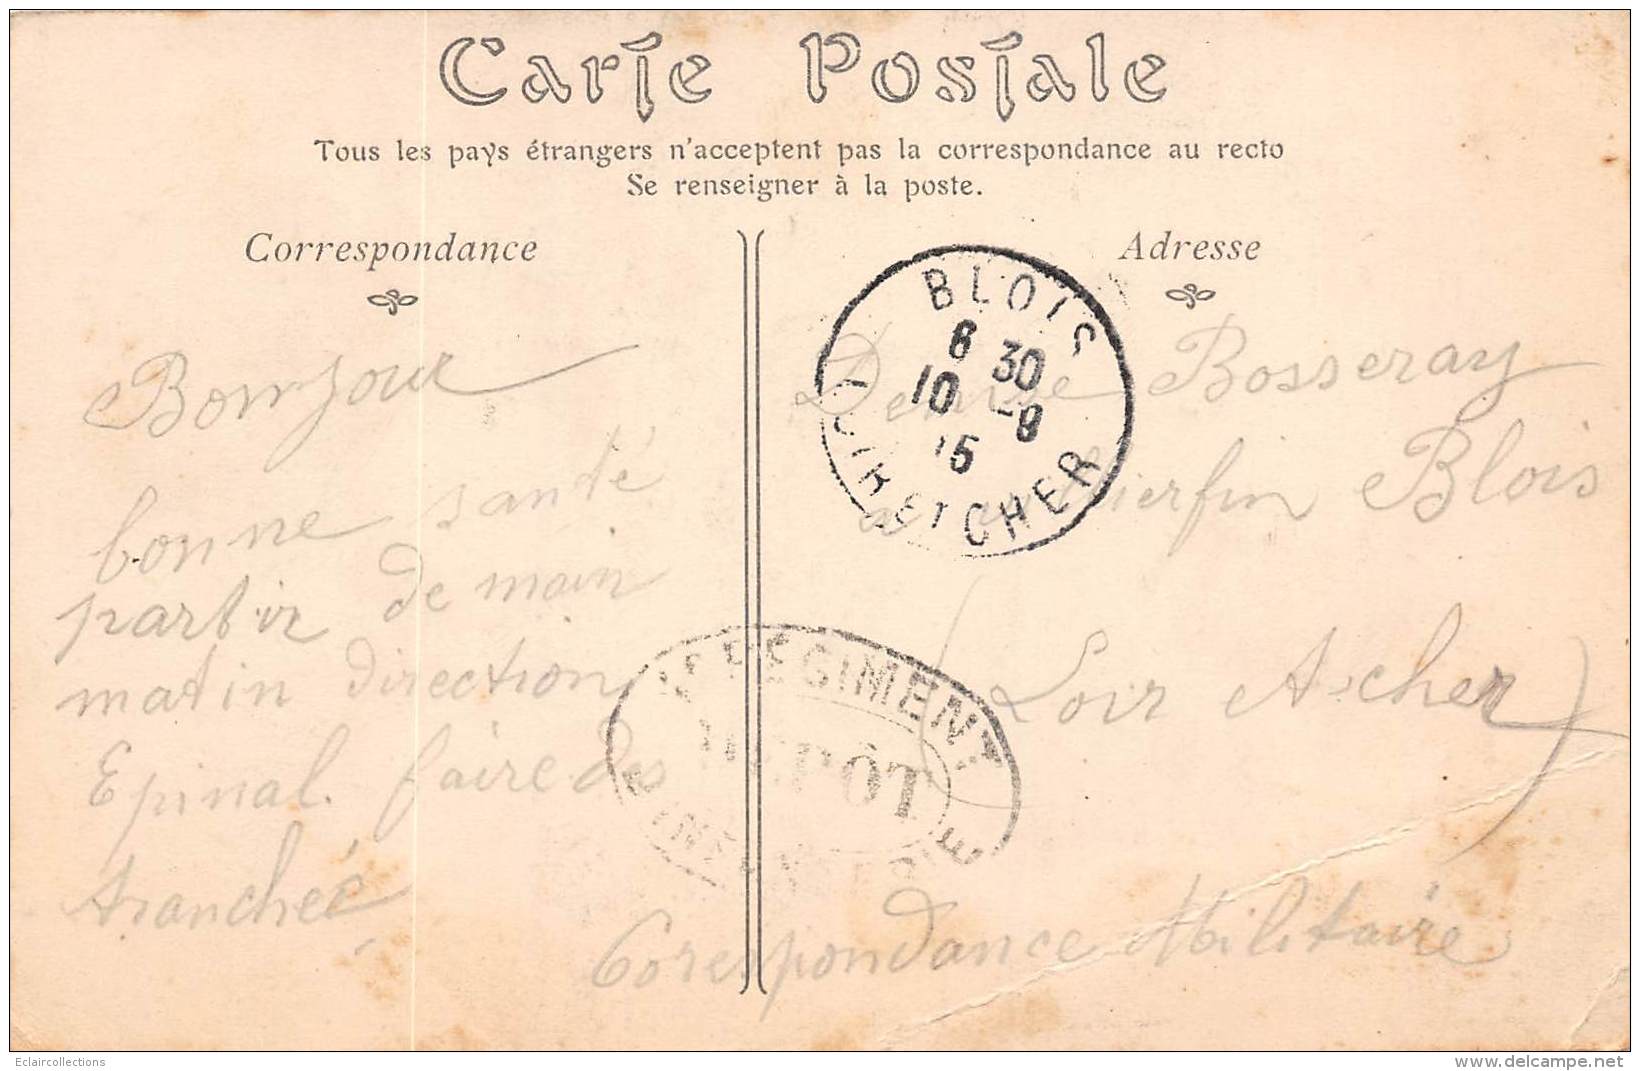 Carte Postale
Tous les pays étrangers n'acceptent pas la correspondance au recto
Se renseigner à la poste.
Correspondance
Adresse
BLOIS
8 30
10 -9
15
LOIR ET CHER
Bonjour
bonne santé
partir de main
matin direction
Epinal. faire des
tranchéé
Denise Bosseray
Blois
Loir Ascher
Corespondance Militaire
RÉGIMENT
DÉPÔT
D'INFANTERIE
Eclaircollections
www.delcampe.net